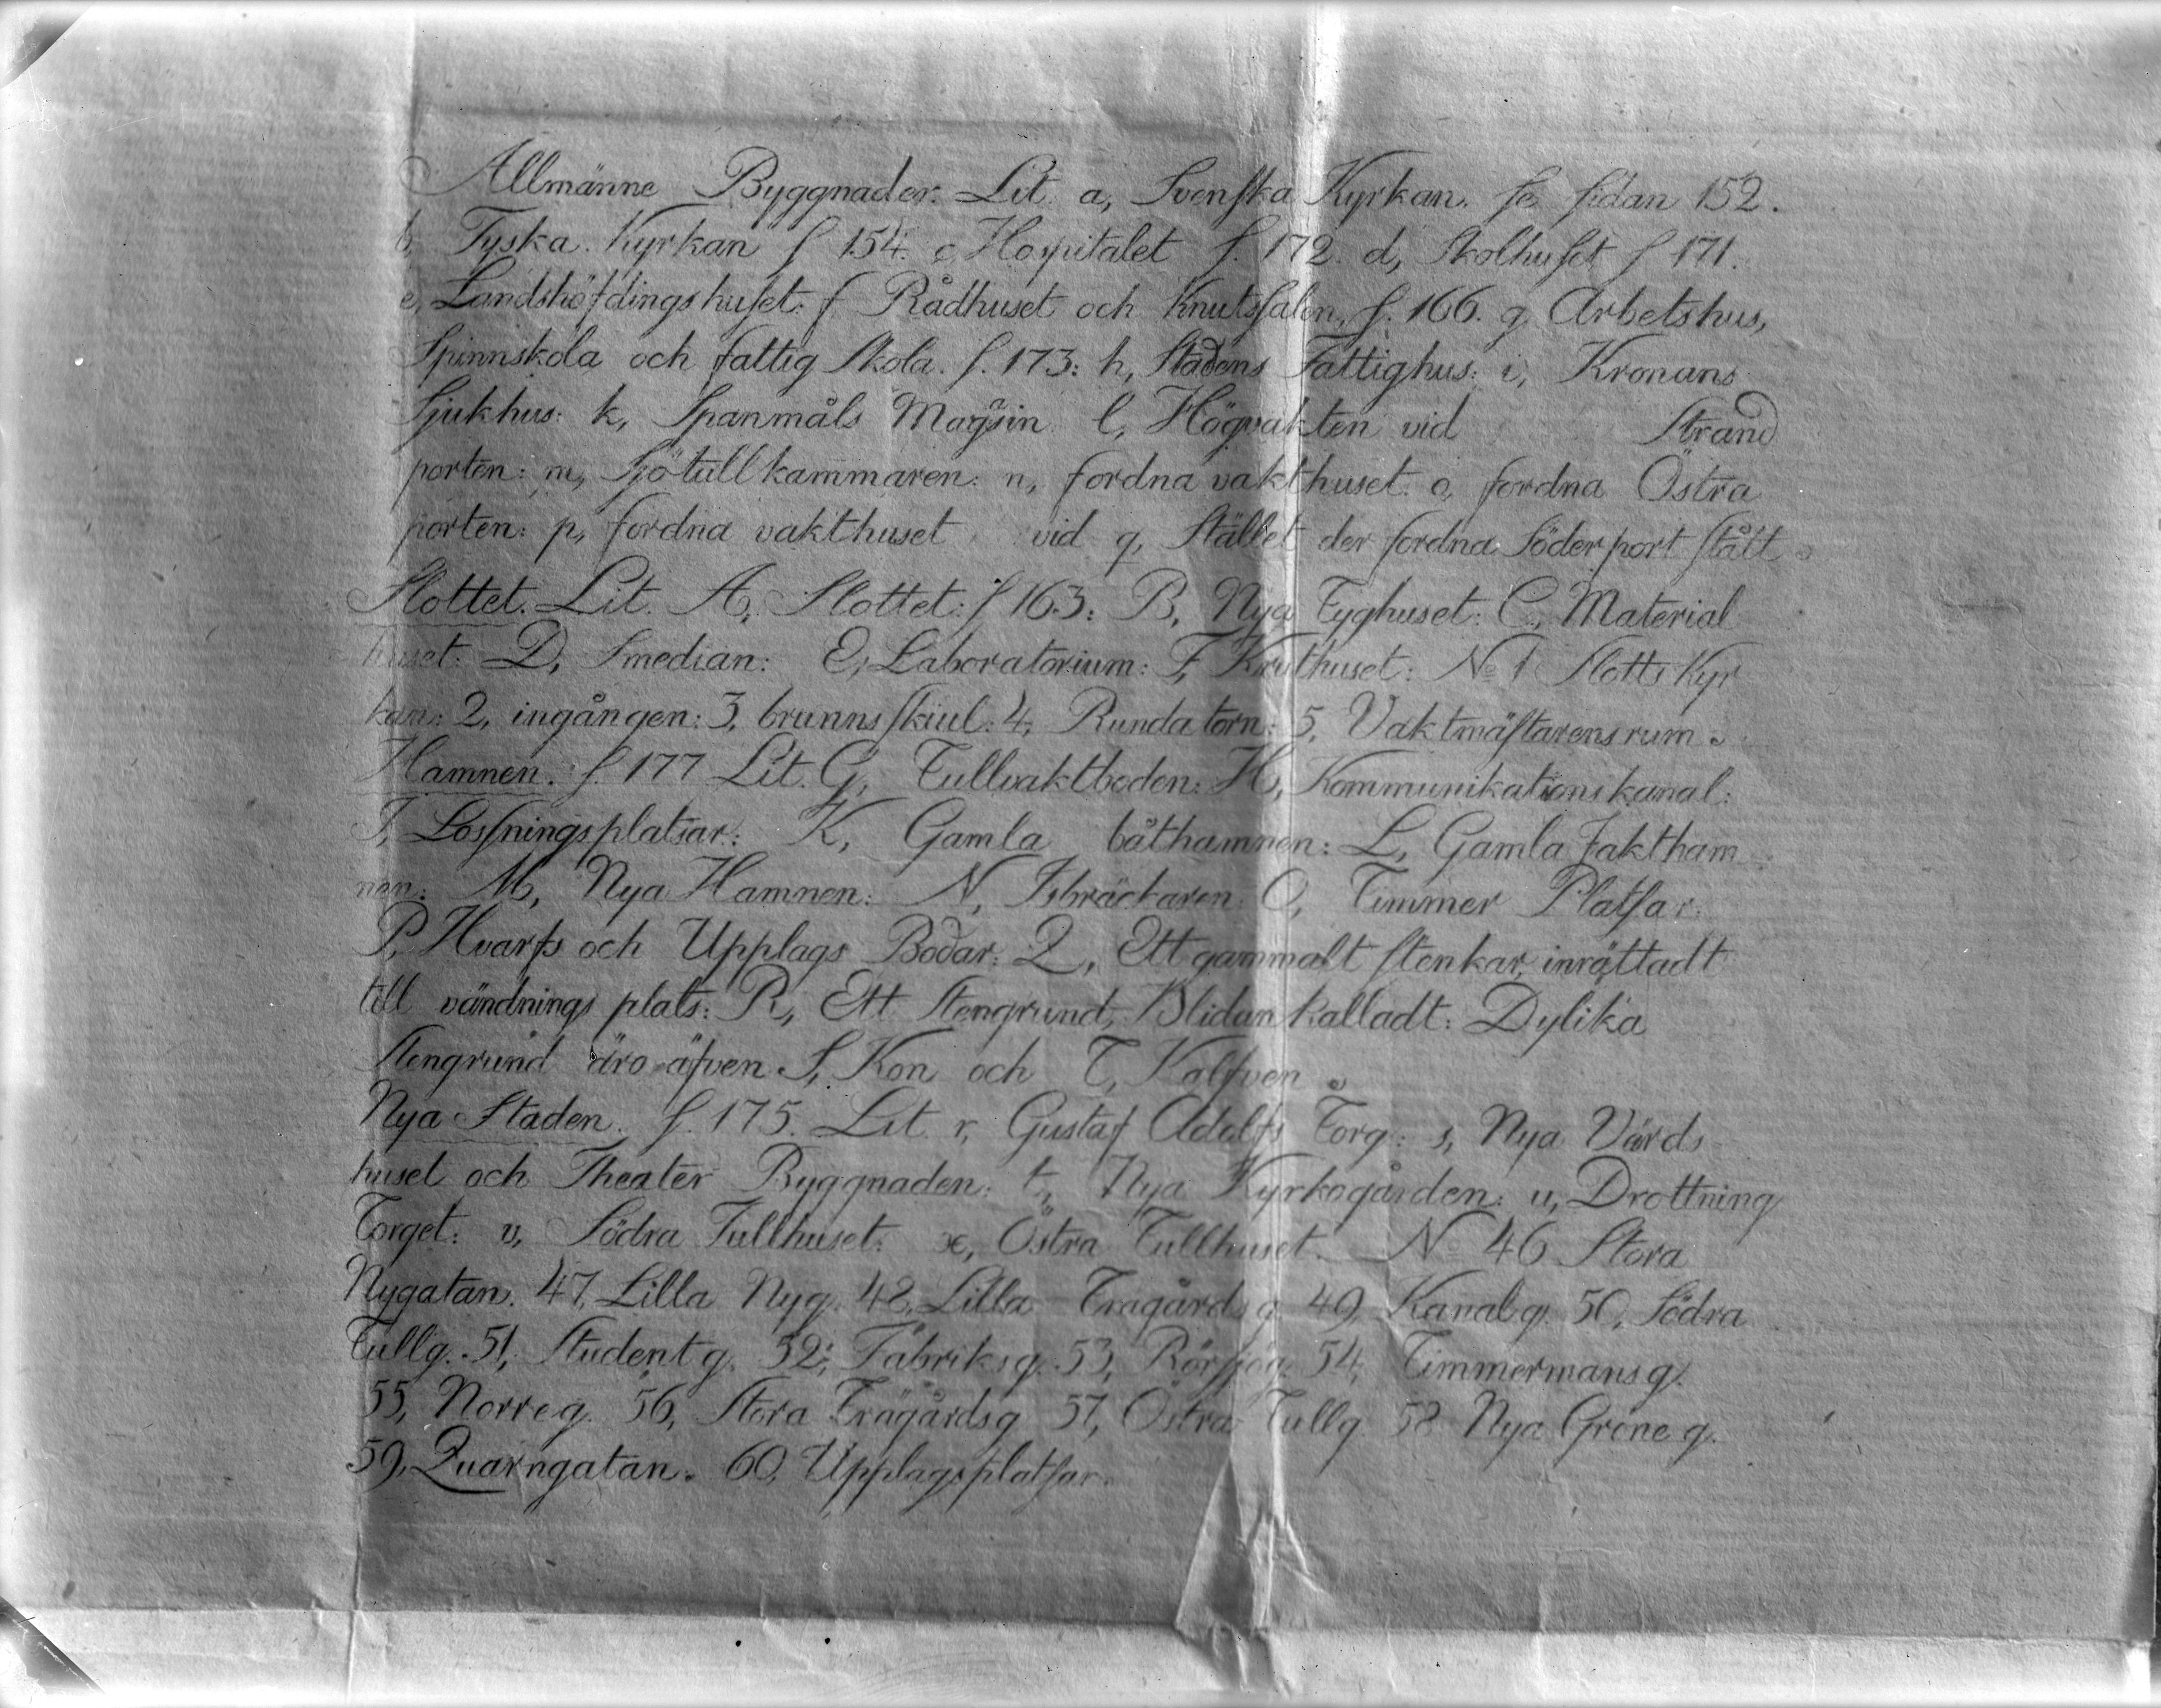 Allmänne Byggnader. Lit. a, Svenska Kyrkan. se sidan 152.
b, Tyska Kyrkan s 154. c, Hospitalet s. 172. d, Skolhuset s 171.
e, Landshöfdingshuset: f Rådhuset och Knutssalen, s. 166. g, Arbetshus,
Spinnskola och fattig Skola. s. 173: h, Stadens Fattighus: i, Kronans
Sjukhus: k, Spanmåls Magasin l, Högvakten vid Strand
porten: m, Sjötullkammaren: n, fordna vakthuset o, fordna Östra
porten: p, fordna vakthuset vid q, Stället der fordna Söderport stått.
Slottet. Lit. A, Slottet: s 163: B, Nya Tyghuset: C, Material
huset: D, Smedian: E, Laboratorium: F, Kruthuset: No 1 Slotts Kyr
kan: 2, ingången: 3, brunns skiul: 4, Runda torn: 5, Vaktmästarens rum.
Hamnen. s. 177 Lit. G, Tullvaktboden: H, Kommunikations kanal:
I, Lossnings platsar: K, Gamla båthamnen: L, Gamla Jaktham
nen: M, Nya Hamnen: N, Isbräckaren O, Timmer Platsar:
P, Hvarfs och Upplags Bodar: Q, Ett gammalt stenkar, inrättadt
till vändnings plats: R, Ett Stengrund, Blidan kalladt: Dylika
Stengrund äro äfven S, Kon och T, Kalfven.
Nya Staden. s. 175. Lit. r, Gustaf Adolfs Torg: s, Nya Värds
huset och Theater Byggnaden: t, Nya Kyrkogården: u, Drottning
Torget: v, Södra Tullhuset: x, Östra Tullhuset. No 46 Stora
Nygatan. 47, Lilla Nyg. 48, Lilla Trägårds g. 49, Kanal g. 50, Södra
Tullg. 51, Student g. 52, Fabriks g. 53, Rörsjö g. 54, Timmermans g.
55, Norre g. 56, Stora Trägårds g 57, Östra Tullg 58 Nya Gröne g.
59, Quarngatan. 60, Upplags platsar.